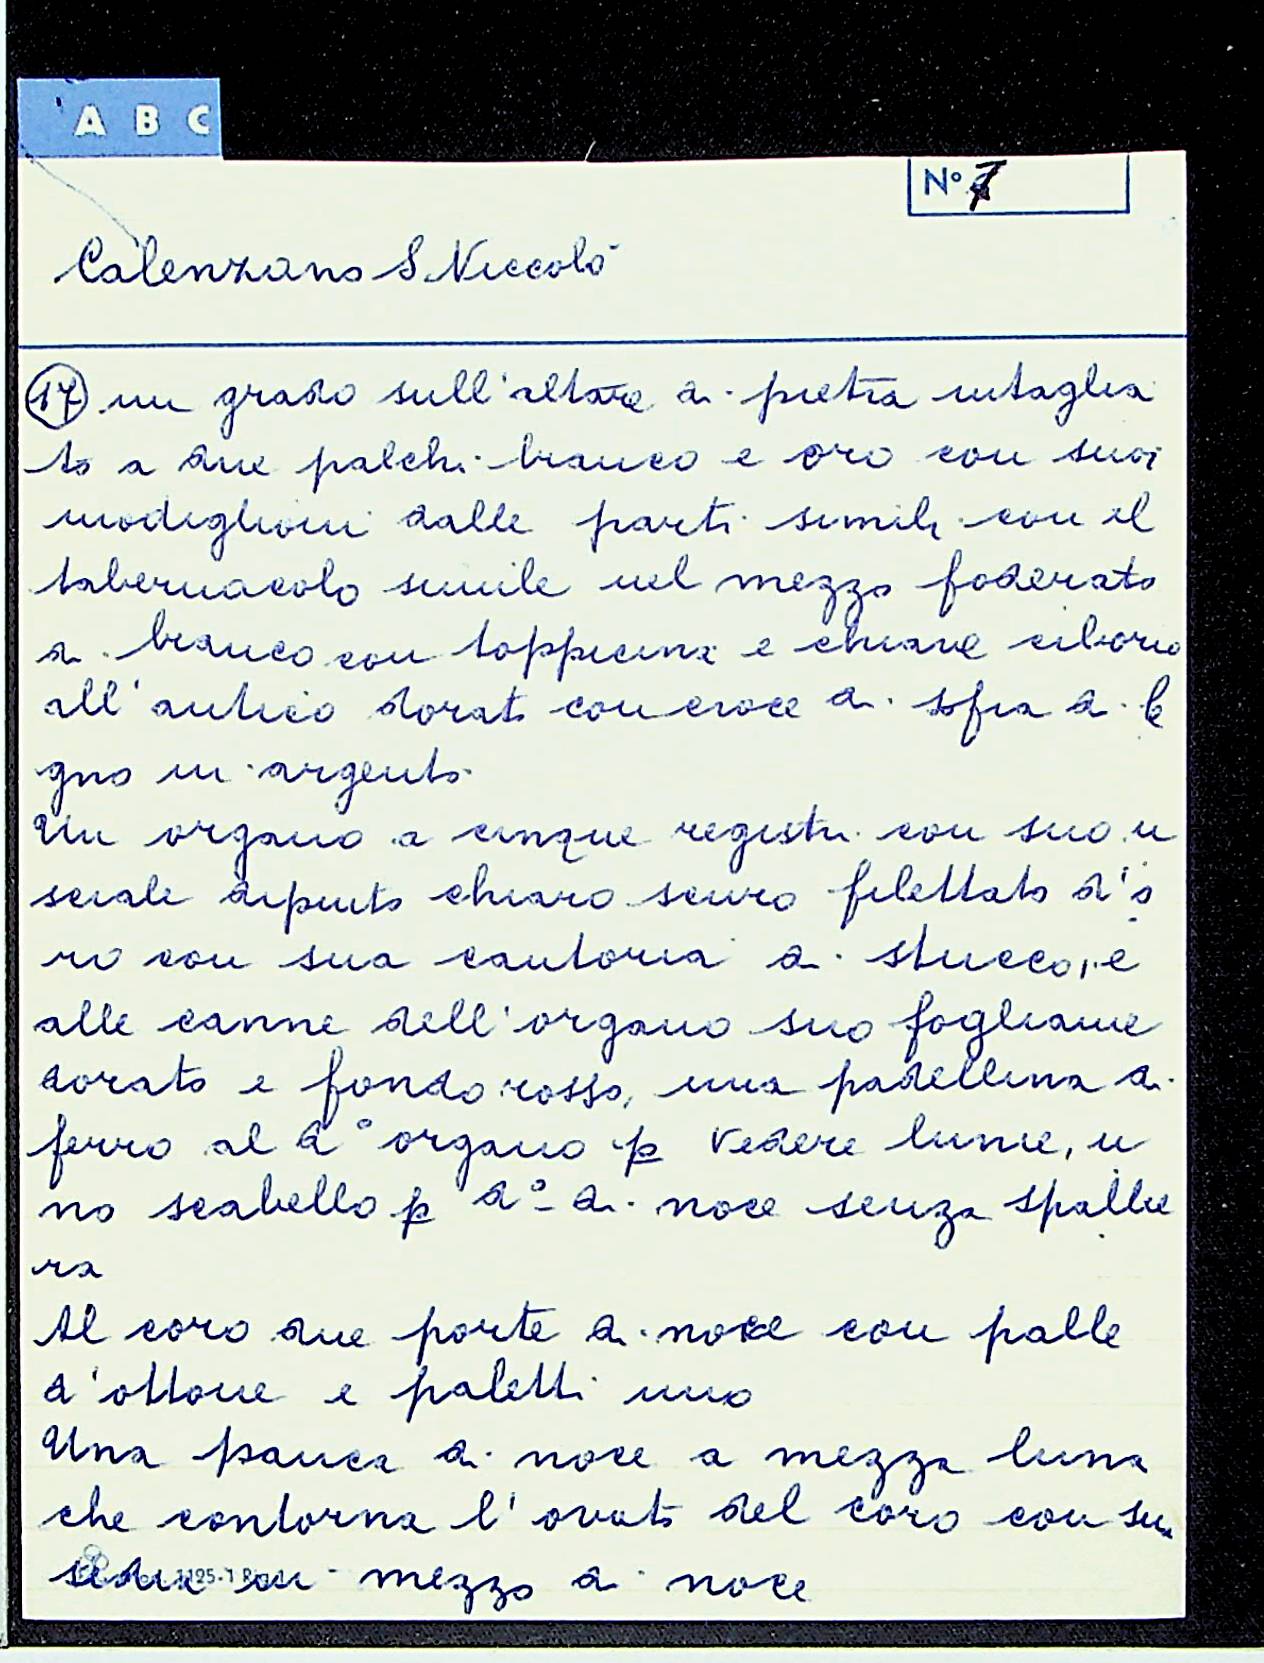 A B C
N° 7
Calenzano S. Niccolò
17 un grado sull'altare di pietra intaglia
to a due palchi bianco e oro con suoi
modiglioni dalle parti simili con il
tabernacolo simile nel mezzo foderato
di bianco con toppicina e chiave ciborio
all'antico dorato con croce di sopra di le
gno in argento
Un organo a cinque registri con suo u
sciale dipinto chiaro scuro filettato d'o
ro con sua cantoria di stucco, e
alle canne dell'organo suo fogliame
dorato e fondo rosso, una padellina di
ferro al d° organo p vedere lume, u
no scabello p d° di noce senza spallie
ra
Al coro due porte di noce con palle
d'ottone e paletti uno
Una panca di noce a mezza luna
che contorna l'ovato del coro con sua
sedia in mezzo di noce